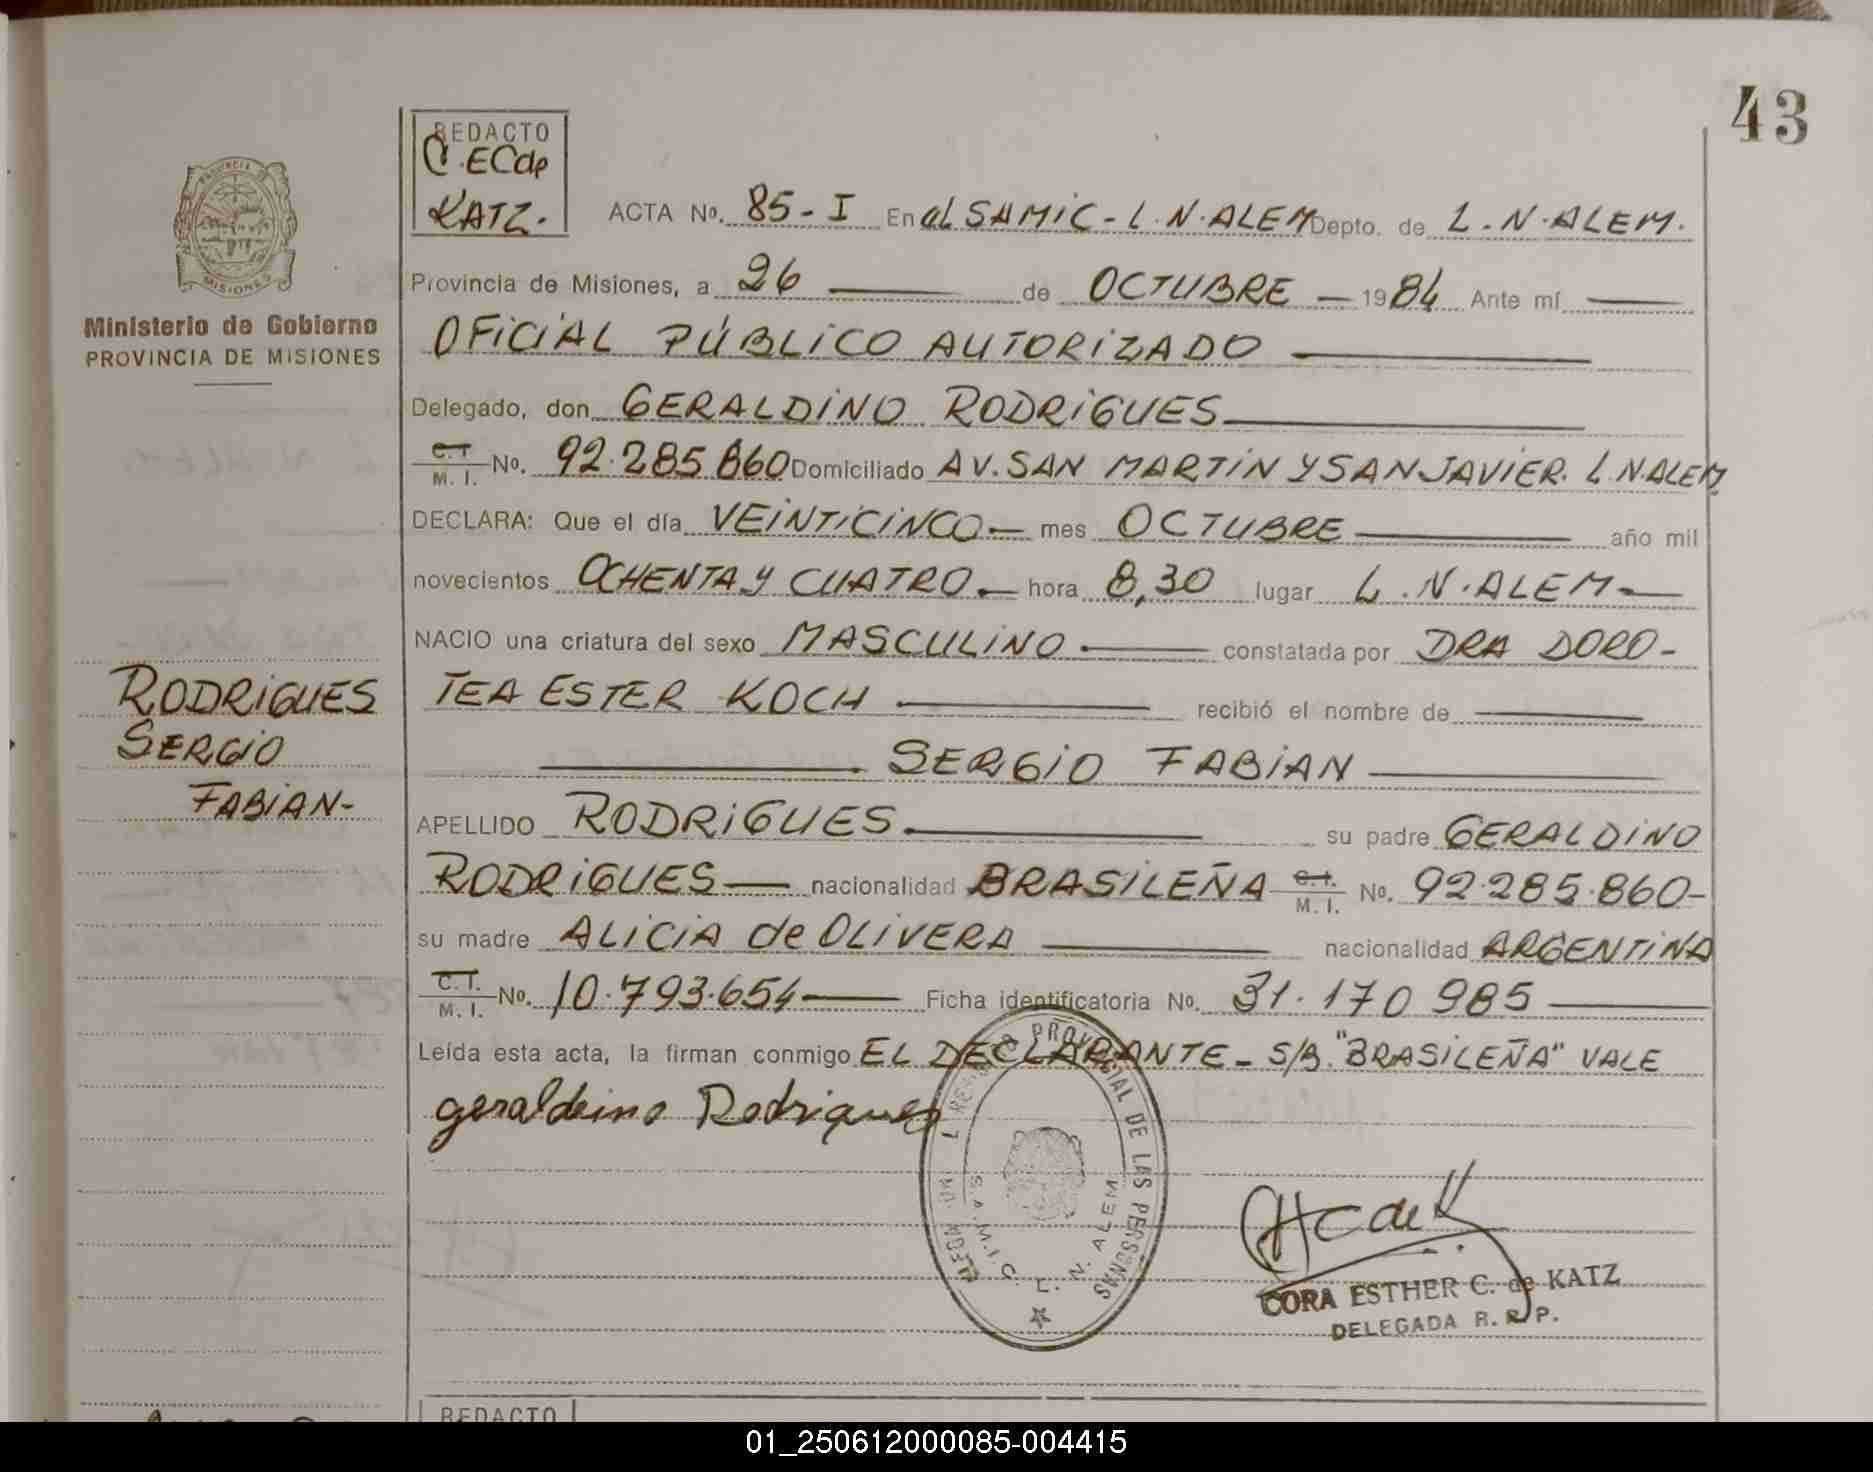 43
REDACTO
C.ECde
KATZ.-
ACTA No. 85-I En el SAMIC-L.N.ALEM Depto. de L.N.ALEM.
PROVINCIA DE
MISIONES
Ministerio de Gobierno
PROVINCIA DE MISIONES
Provincia de Misiones, a 26 — de OCTUBRE — 1984 Ante mí —
OFICIAL PÚBLICO AUTORIZADO —
Delegado, don GERALDINO RODRIGUES —
C.I. M. I. No. 92.285.860 Domiciliado AV. SAN MARTIN Y SAN JAVIER. L.N.ALEM
DECLARA: Que el día VEINTICINCO — mes OCTUBRE — año mil
novecientos OCHENTA Y CUATRO — hora 8,30 lugar L.N.ALEM —
NACIO una criatura del sexo MASCULINO — constatada por DRA DORO-
TEA ESTER KOCH — recibió el nombre de —
— SERGIO FABIAN —
RODRIGUES
SERGIO
FABIAN-
APELLIDO RODRIGUES — su padre GERALDINO
RODRIGUES — nacionalidad BRASILEÑA C.I. M. I. No. 92.285.860-
su madre ALICIA de OLIVERA — nacionalidad ARGENTINA
C.I. M. I. No. 10.793.654 — Ficha identificatoria No. 31.170 985 —
Leída esta acta, la firman conmigo EL DECLARANTE - S/B. "BRASILEÑA" VALE
geraldino Rodrigues
PROVINCIAL DE LAS PERSONAS
S.A.M.I.C. L. N. ALEM
CORA ESTHER C. de KATZ
DELEGADA R. R. P.
REDACTO
01_250612000085-004415